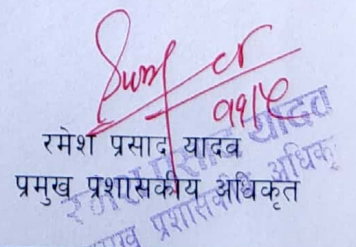 ११/८
रमेश प्रसाद यादव
प्रमुख प्रशासकीय अधिकृत
रमेश प्रसाद यादव
प्रमुख प्रशासकीय अधिकृत